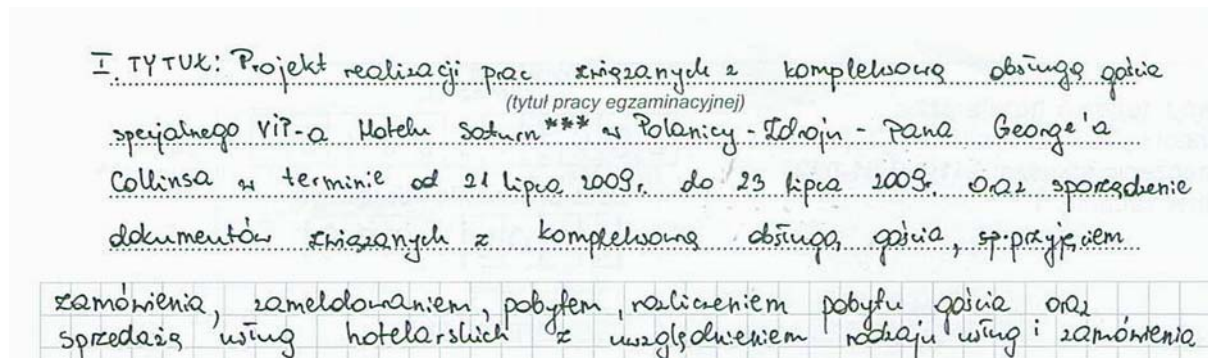 I. TYTUŁ: Projekt realizacji prac związanych z kompleksową obsługą gościa
(tytuł pracy egzaminacyjnej)
specjalnego VIP-a Hotelu Saturn*** w Polanicy-Zdroju - Pana George'a
Collinsa w terminie od 21 lipca 2009r. do 23 lipca 2009r. oraz sporządzenie
dokumentów związanych z kompleksową obsługą gościa, przyjęciem
zamówienia, zameldowaniem, pobytem, rozliczeniem pobytu gościa oraz
sprzedażą usług hotelarskich z uwzględnieniem rodzaju usług i zamówienia